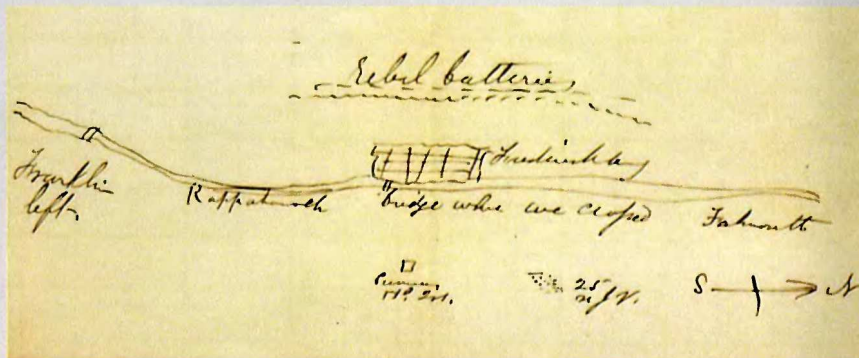 Rebel batteries
Fredericksburg
Franklin
left
Rappahannock
bridge where we crossed
Falmouth
25
N.J.V.
S N